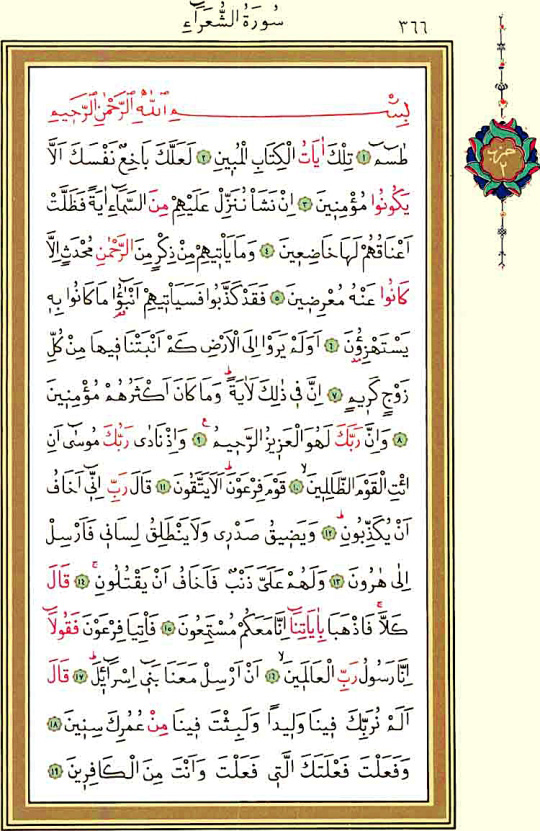 سُورَةُ الشُّعَرَاءِ
٣٦٦
بِسْــــــمِ اللّٰهِ الرَّحْمٰنِ الرَّحٖيمِ
جزء ٢
طٰسٓمٓ ١ تِلْكَ اٰيَاتُ الْكِتَابِ الْمُبٖينِ ٢ لَعَلَّكَ بَاخِعٌ نَفْسَكَ اَلَّا
يَكُونُوا مُؤْمِنٖينَ ٣ اِنْ نَشَأْ نُنَزِّلْ عَلَيْهِمْ مِنَ السَّمَٓاءِ اٰيَةً فَظَلَّتْ
اَعْنَاقُهُمْ لَهَا خَاضِعٖينَ ٤ وَمَا يَأْتٖيهِمْ مِنْ ذِكْرٍ مِنَ الرَّحْمٰنِ مُحْدَثٍ اِلَّا
كَانُوا عَنْهُ مُعْرِضٖينَ ٥ فَقَدْ كَذَّبُوا فَسَيَأْتٖيهِمْ اَنْبٰٓؤُ۬ا مَا كَانُوا بِهٖ
يَسْتَهْزِؤُ۫نَ ٦ اَوَلَمْ يَرَوْا اِلَى الْاَرْضِ كَمْ اَنْبَتْنَا فٖيهَا مِنْ كُلِّ
زَوْجٍ كَرٖيمٍ ٧ اِنَّ فٖى ذٰلِكَ لَاٰيَةًؕ وَمَا كَانَ اَكْثَرُهُمْ مُؤْمِنٖينَ
٨ وَاِنَّ رَبَّكَ لَهُوَ الْعَزٖيزُ الرَّحٖيمُۚ ٩ وَاِذْ نَادٰى رَبُّكَ مُوسٰٓى اَنِ
ائْتِ الْقَوْمَ الظَّالِمٖينَۙ ١٠ قَوْمَ فِرْعَوْنَؕ اَلَا يَتَّقُونَ ١١ قَالَ رَبِّ اِنّٖٓى اَخَافُ
اَنْ يُكَذِّبُونِؕ ١٢ وَيَضٖيقُ صَدْرٖى وَلَا يَنْطَلِقُ لِسَانٖى فَاَرْسِلْ
اِلٰى هٰرُونَ ١٣ وَلَهُمْ عَلَىَّ ذَنْبٌ فَاَخَافُ اَنْ يَقْتُلُونِۚ ١٤ قَالَ
كَلَّاۚ فَاذْهَبَا بِاٰيَاتِنَٓا اِنَّا مَعَكُمْ مُسْتَمِعُونَ ١٥ فَأْتِيَا فِرْعَوْنَ فَقُولَٓا
اِنَّا رَسُولُ رَبِّ الْعَالَمٖينَۙ ١٦ اَنْ اَرْسِلْ مَعَنَا بَنٖٓى اِسْرَٓائٖلَؕ ١٧ قَالَ
اَلَمْ نُرَبِّكَ فٖينَا وَلٖيدًا وَلَبِثْتَ فٖينَا مِنْ عُمُرِكَ سِنٖينَ ١٨
وَفَعَلْتَ فَعْلَتَكَ الَّتٖى فَعَلْتَ وَاَنْتَ مِنَ الْكَافِرٖينَ ١٩